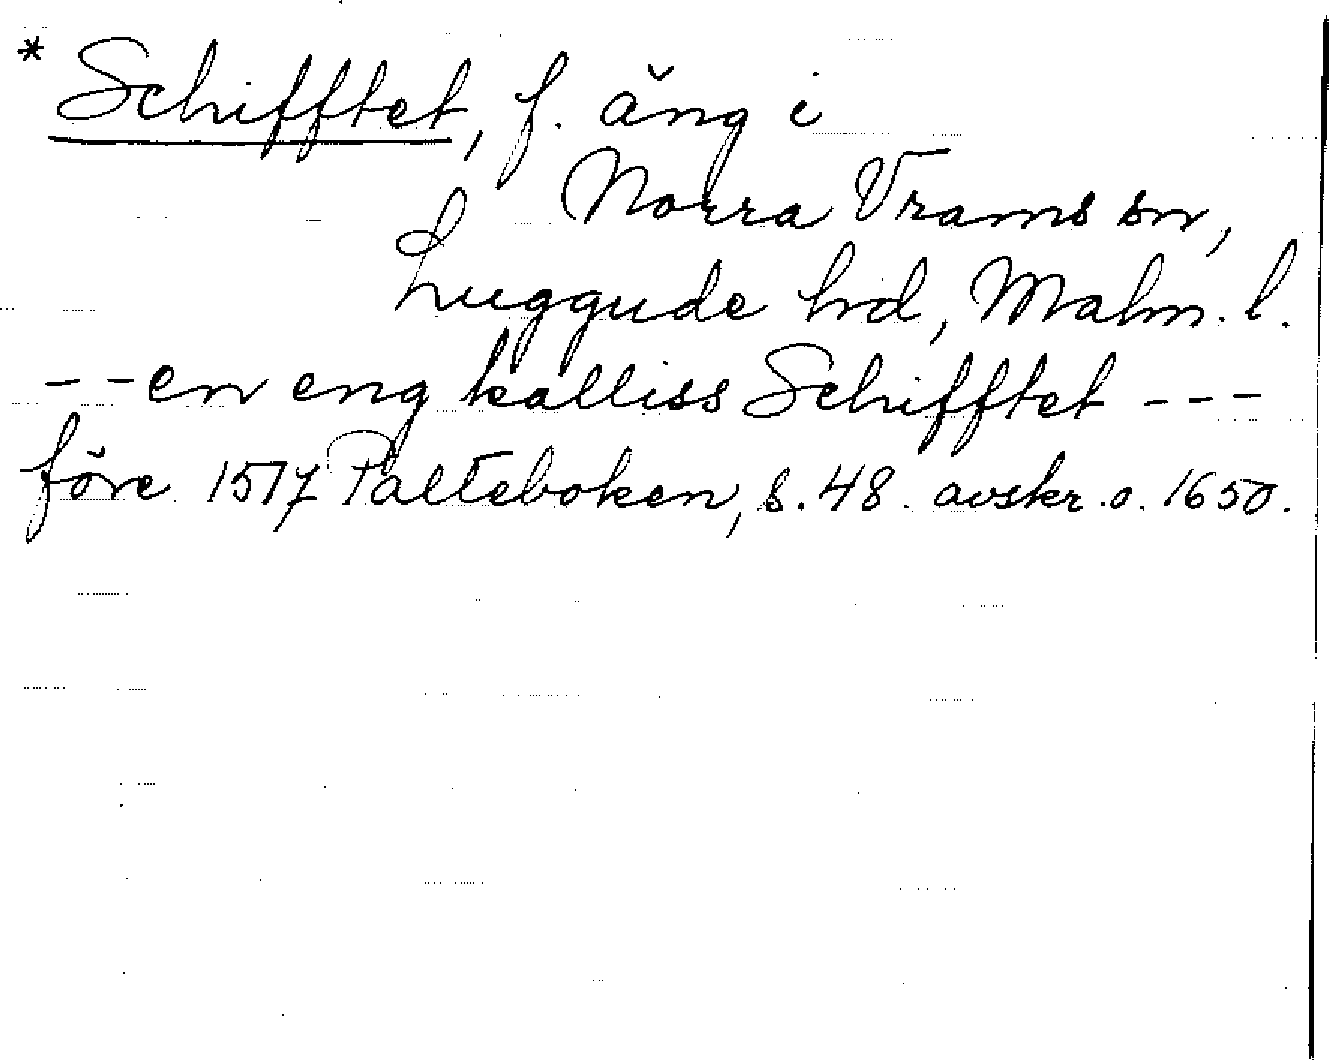 * Schifftet, f. äng i
Norra Vrams sn,
Luggude hd, Malm. l.
- - en eng kalliss Schifftet - - -
före 1517 Palteboken, s. 48. avskr. o. 1650.